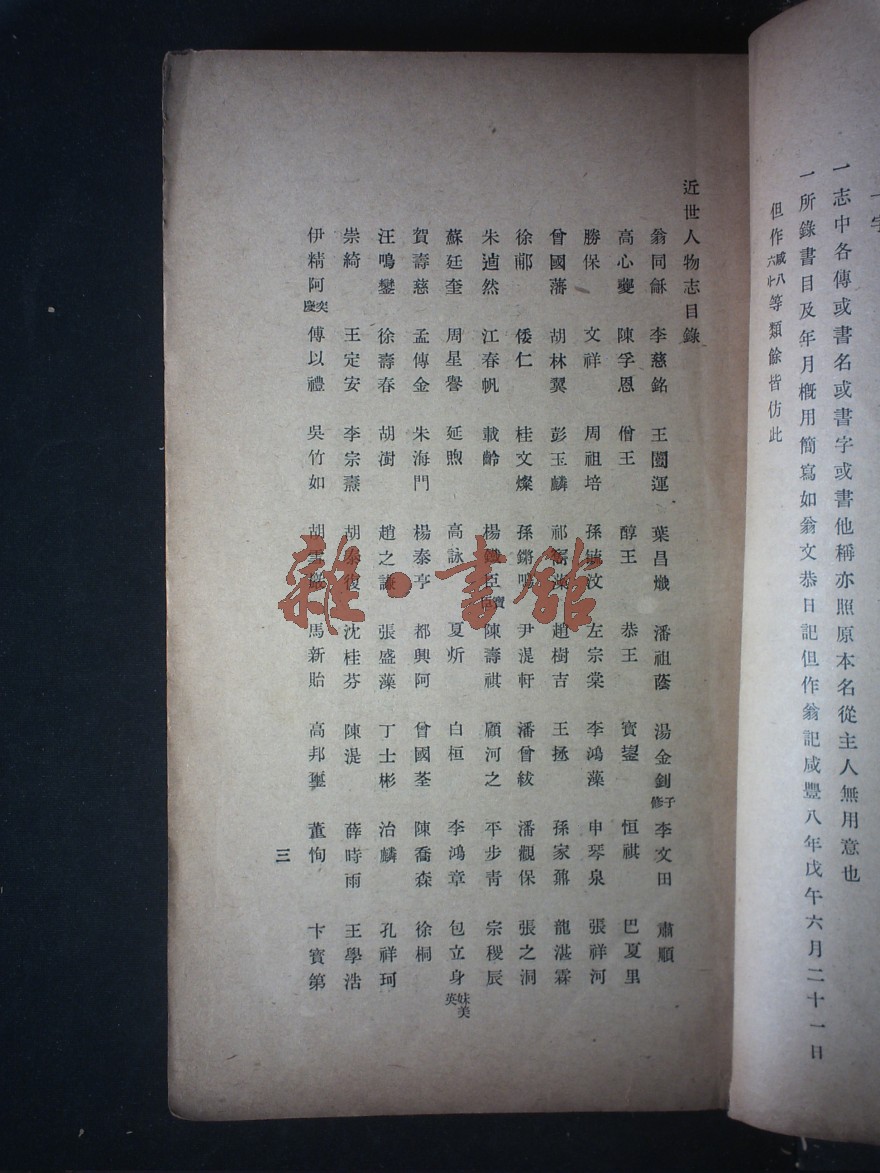 一志中各傳或書名或書字或書他稱亦照原本名從主人無用意也
一所錄書目及年月概用簡寫如翁文恭日記但作翁記咸豐八年戊午六月二十一日
但作咸八六廿等類餘皆仿此
近世人物志目錄
翁同龢 李慈銘 王闓運 葉昌熾 潘祖蔭 湯金釗子修 李文田 肅順
高心夔 陳孚恩 僧王 醇王 恭王 寶鋆 恒祺 巴夏里
勝保 文祥 周祖培 孫毓汶 左宗棠 李鴻藻 申琴泉 張祥河
曾國藩 胡林翼 彭玉麟 祁寯藻 趙樹吉 王拯 孫家鼐 龍湛霖
徐郙 倭仁 桂文燦 孫鏘鳴 尹湜軒 潘曾綬 潘觀保 張之洞
朱逌然 江春帆 載齡 楊鐵臣寶臣 陳壽祺 顧河之 平步青 宗稷辰
蘇廷奎 周星譽 延煦 高詠 夏炘 白桓 李鴻章 包立身妹美英
賀壽慈 孟傳金 朱海門 楊泰亨 都興阿 曾國荃 陳喬森 徐桐
汪鳴鑾 徐壽春 胡澍 趙之謙 張盛藻 丁士彬 治麟 孔祥珂
崇綺 王定安 李宗燾 胡泰復 沈桂芬 陳湜 薛時雨 王學浩
伊精阿奕慶 傅以禮 吳竹如 胡雪巖 馬新貽 高邦璽 董恂 卞寶第
三
雜·書館